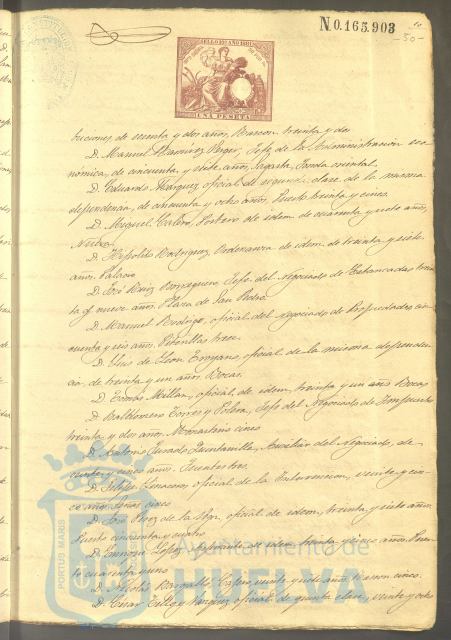 N.0.165,903
50-
SELLO 10º AÑO 1881
UNA PESETA
de setenta y dos años, Rascon treinta y dos
D. Manuel Ramirez Jefe de la Administración eco
nómica, de cincuenta y siete años, Sagasta, Fonda oriental
D. Eduardo Marquez oficial de segunda clase de la misma
dependencia, de cincuenta y ocho años, Puerto treinta y cinco
D. Miguel Calero, Portero de idem de cuarenta y siete años,
Nueva
D. Hipolito Rodriguez Ordenanza de idem de treinta y siete
años, Palacio
D. José Ruiz Jefe del Negociado de Estancadas trein
ta y nueve años, Plaza de San Pedro
D. Manuel Rodrigo, oficial del Negociado de Propiedades cin
cuenta y seis años, trece
D. Luis de Leon oficial de la misma dependen
cia, de treinta y un años, Bocas
D. Tomás Millan, oficial, de idem treinta y un años Bocas
D. Baldomero Torres y Jefe del Negociado de Impuestos
treinta y dos años, Monasterio cinco
D. Antonio Jurado Quintanilla, Auxiliar del Negociado, de
veinte y cinco años
D. Felipe oficial de la Intervencion, veinte y cin
co años cinco
D. José Perez de la oficial de idem, treinta y siete años
Puerto cincuenta y cuatro
D. Lopez de idem treinta y cinco años,
cuarenta y uno
D. Nicolás veinte y siete años, cinco
D. Cesar Tello y Vazquez oficial de quinta clase, veinte y ocho
PORTUS MARIS
Ayuntamiento de
HUELVA